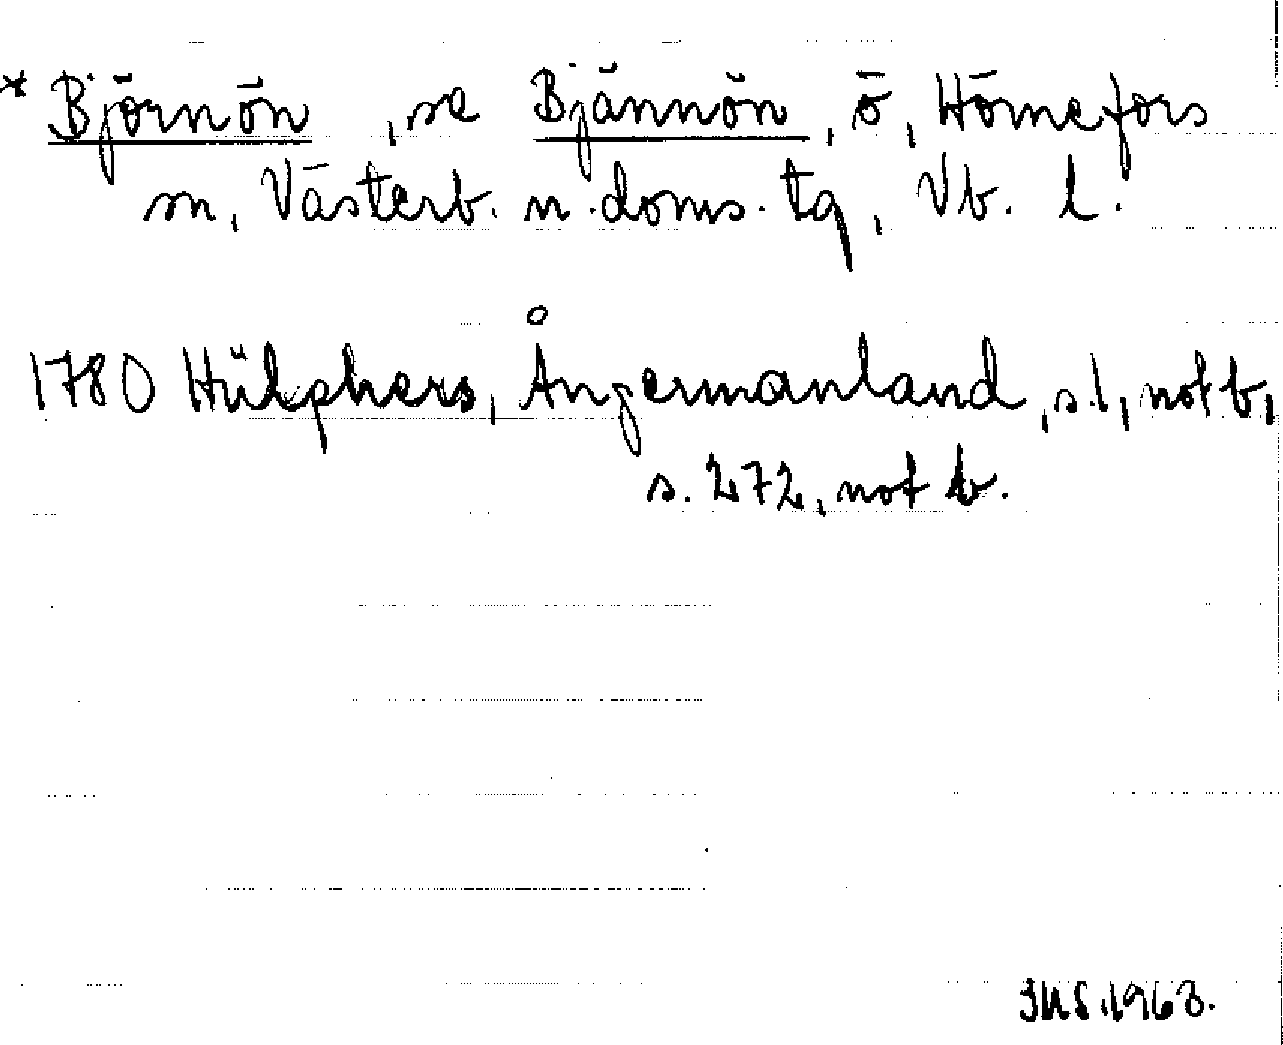 * Björnön, se Bjännön, ö, Hörnefors
sn, Västerb. n. doms. tg, Vb. l.
1780 Hülphers, Ångermanland, s. 1, not b,
s. 272, not b.
1963.